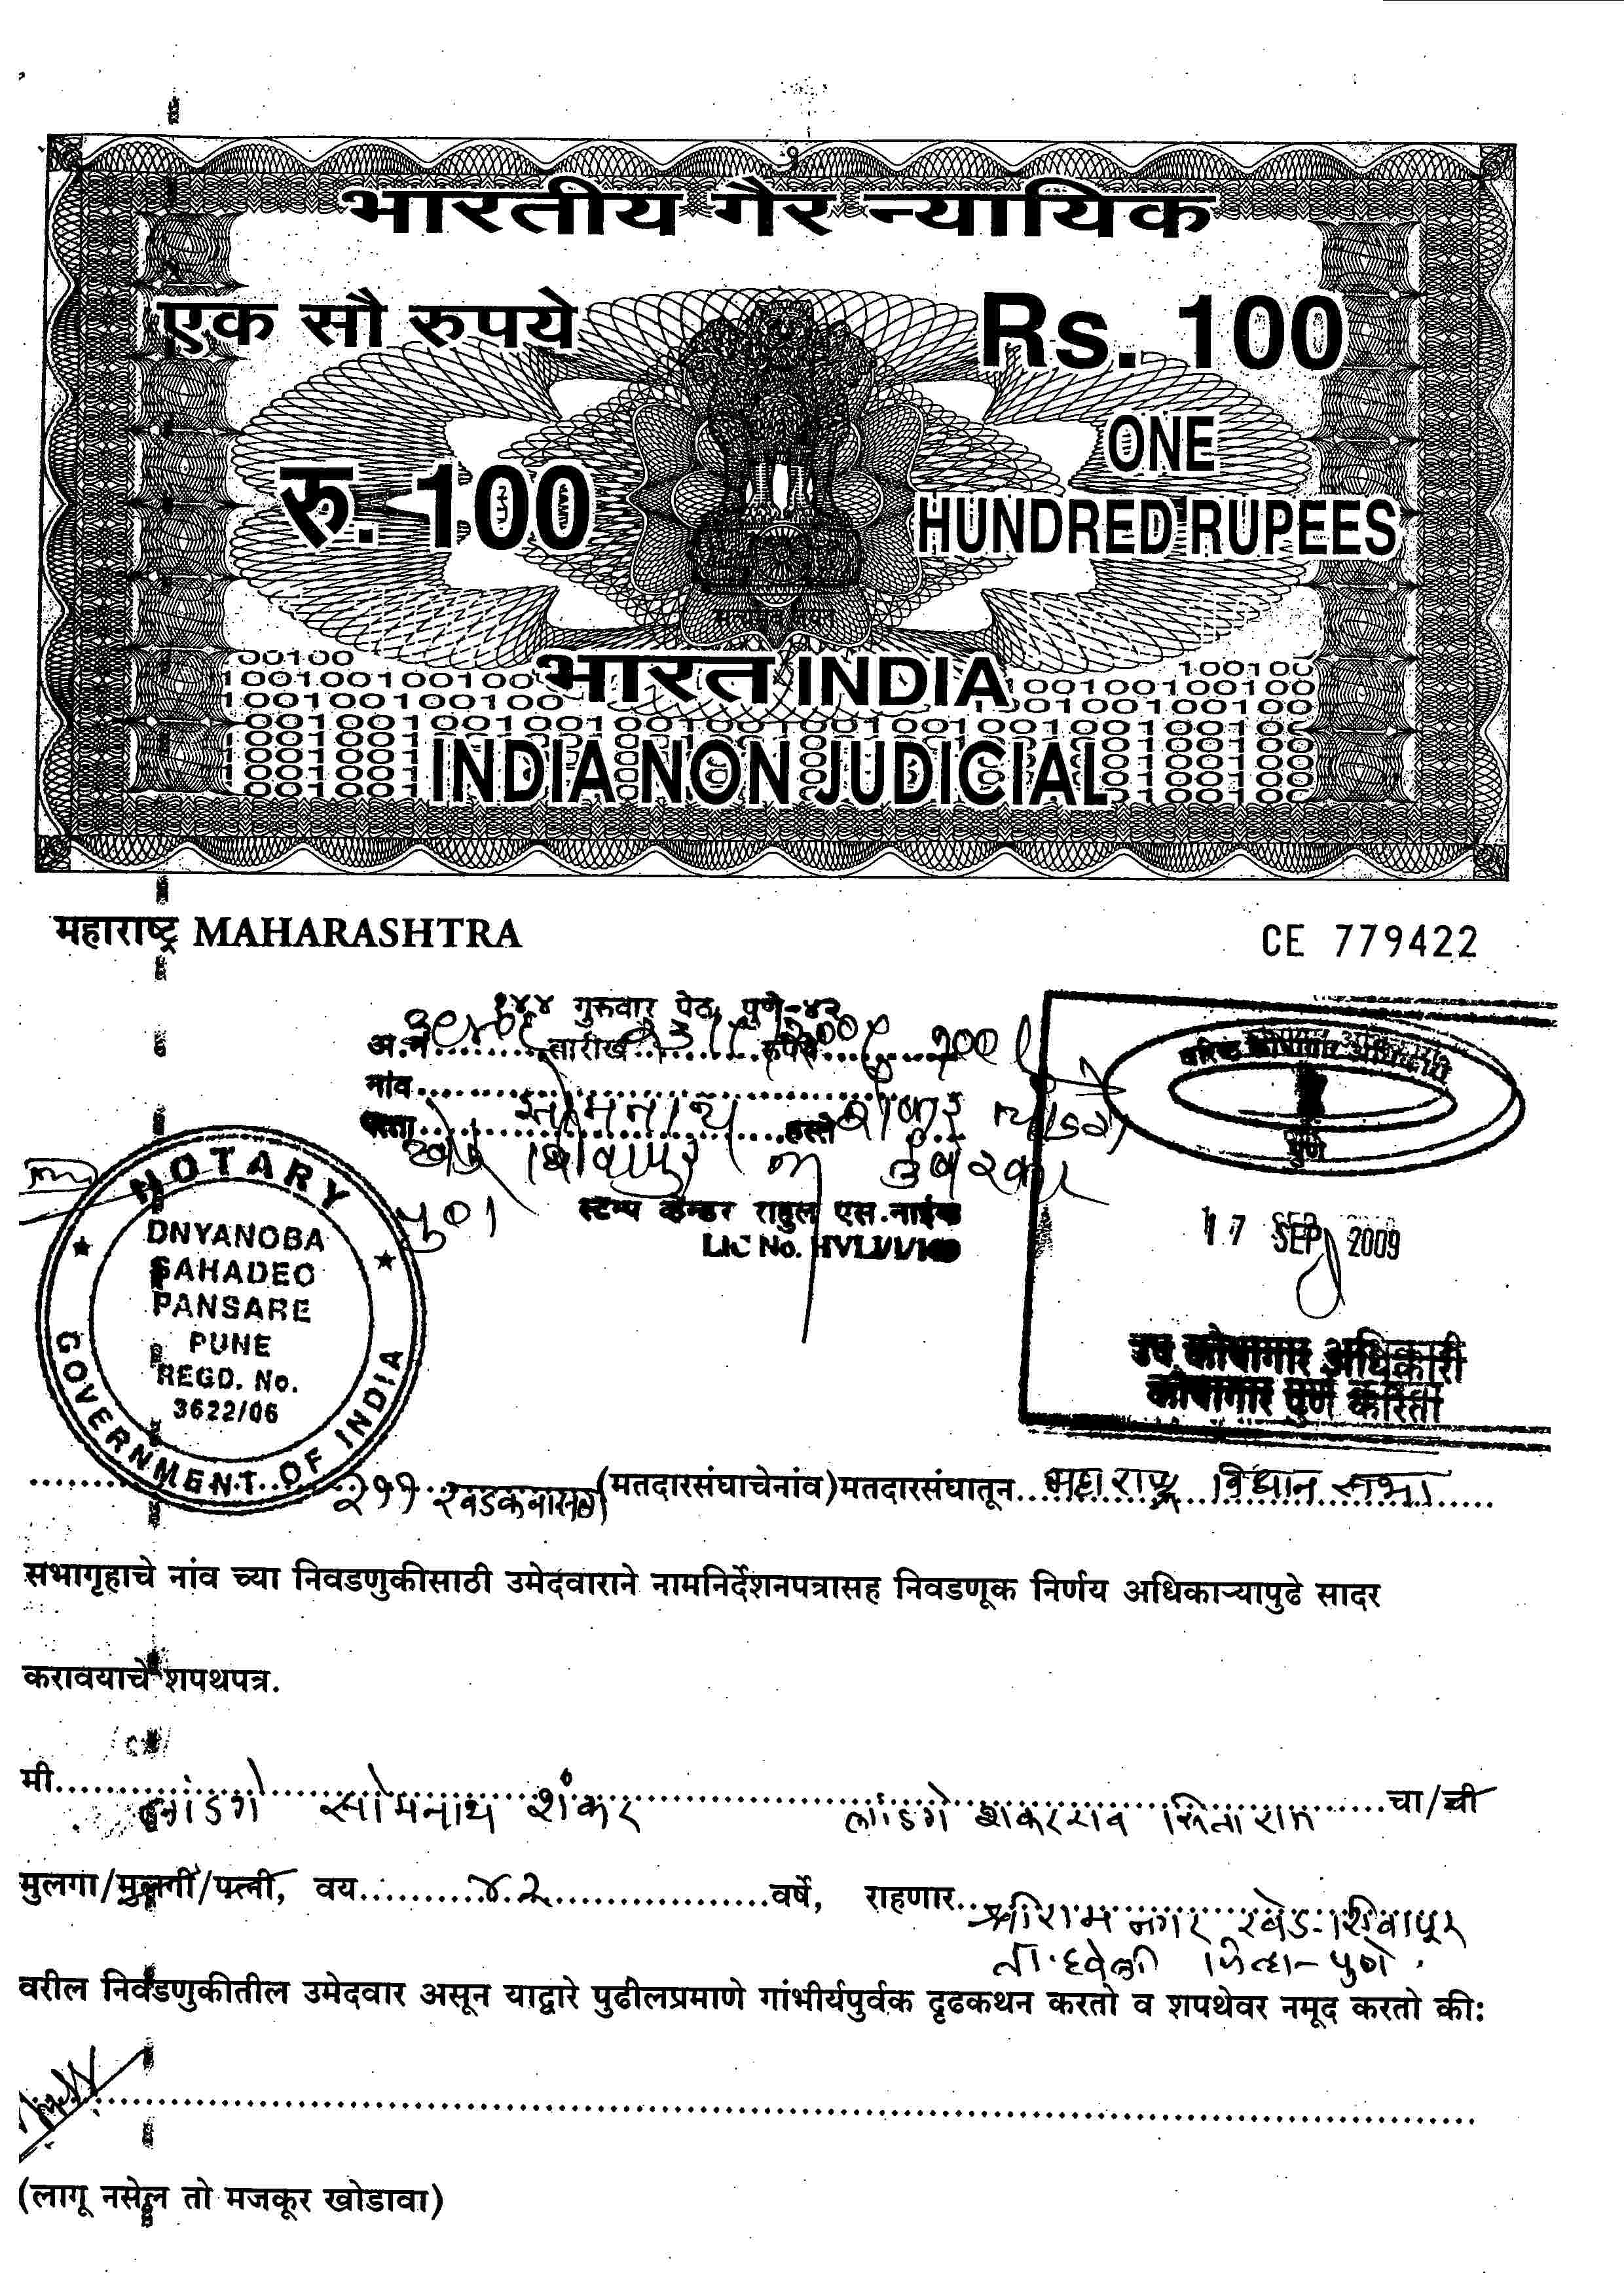 भारतीय गैर न्यायिक
एक सौ रुपये
Rs. 100
रु. 100
ONE
HUNDRED RUPEES
सत्यमेव जयते
भारत INDIA
INDIA NON JUDICIAL
महाराष्ट्र MAHARASHTRA
CE 779422
१४४ गुरुवार पेठ, पुणे-४२
अ.नं. तारीख रुपये १००
नांव
सोमनाथ शंकर
पत्ता हस्ते
खेड शिवापूर
पुणे
स्टॅम्प व्हेन्डर राहुल एस.नाईक
LIC No.
पुणे
17 SEP 2009
उप कोषागार अधिकारी
कोषागार पुणे करिता
NOTARY
DNYANOBA
SAHADEO
PANSARE
PUNE
REGD. No.
3622/06
GOVERNMENT OF INDIA
२११ खडकवासला (मतदारसंघाचेनांव) मतदारसंघातून महाराष्ट्र विधान सभा
सभागृहाचे नांव च्या निवडणुकीसाठी उमेदवाराने नामनिर्देशनपत्रासह निवडणूक निर्णय अधिकाऱ्यापुढे सादर
करावयाचे शपथपत्र.
मी लांडगे सोमनाथ शंकर लांडगे शंकरराव सिताराम चा/ची
मुलगा/मुलगी/पत्नी, वय ४२ वर्षे, राहणार श्रीराम नगर खेड-शिवापूर
ता. हवेली जिल्हा-पुणे.
वरील निवडणुकीतील उमेदवार असून याद्वारे पुढीलप्रमाणे गांभीर्यपुर्वक दृढकथन करतो व शपथेवर नमूद करतो की:
(लागू नसेल तो मजकूर खोडावा)